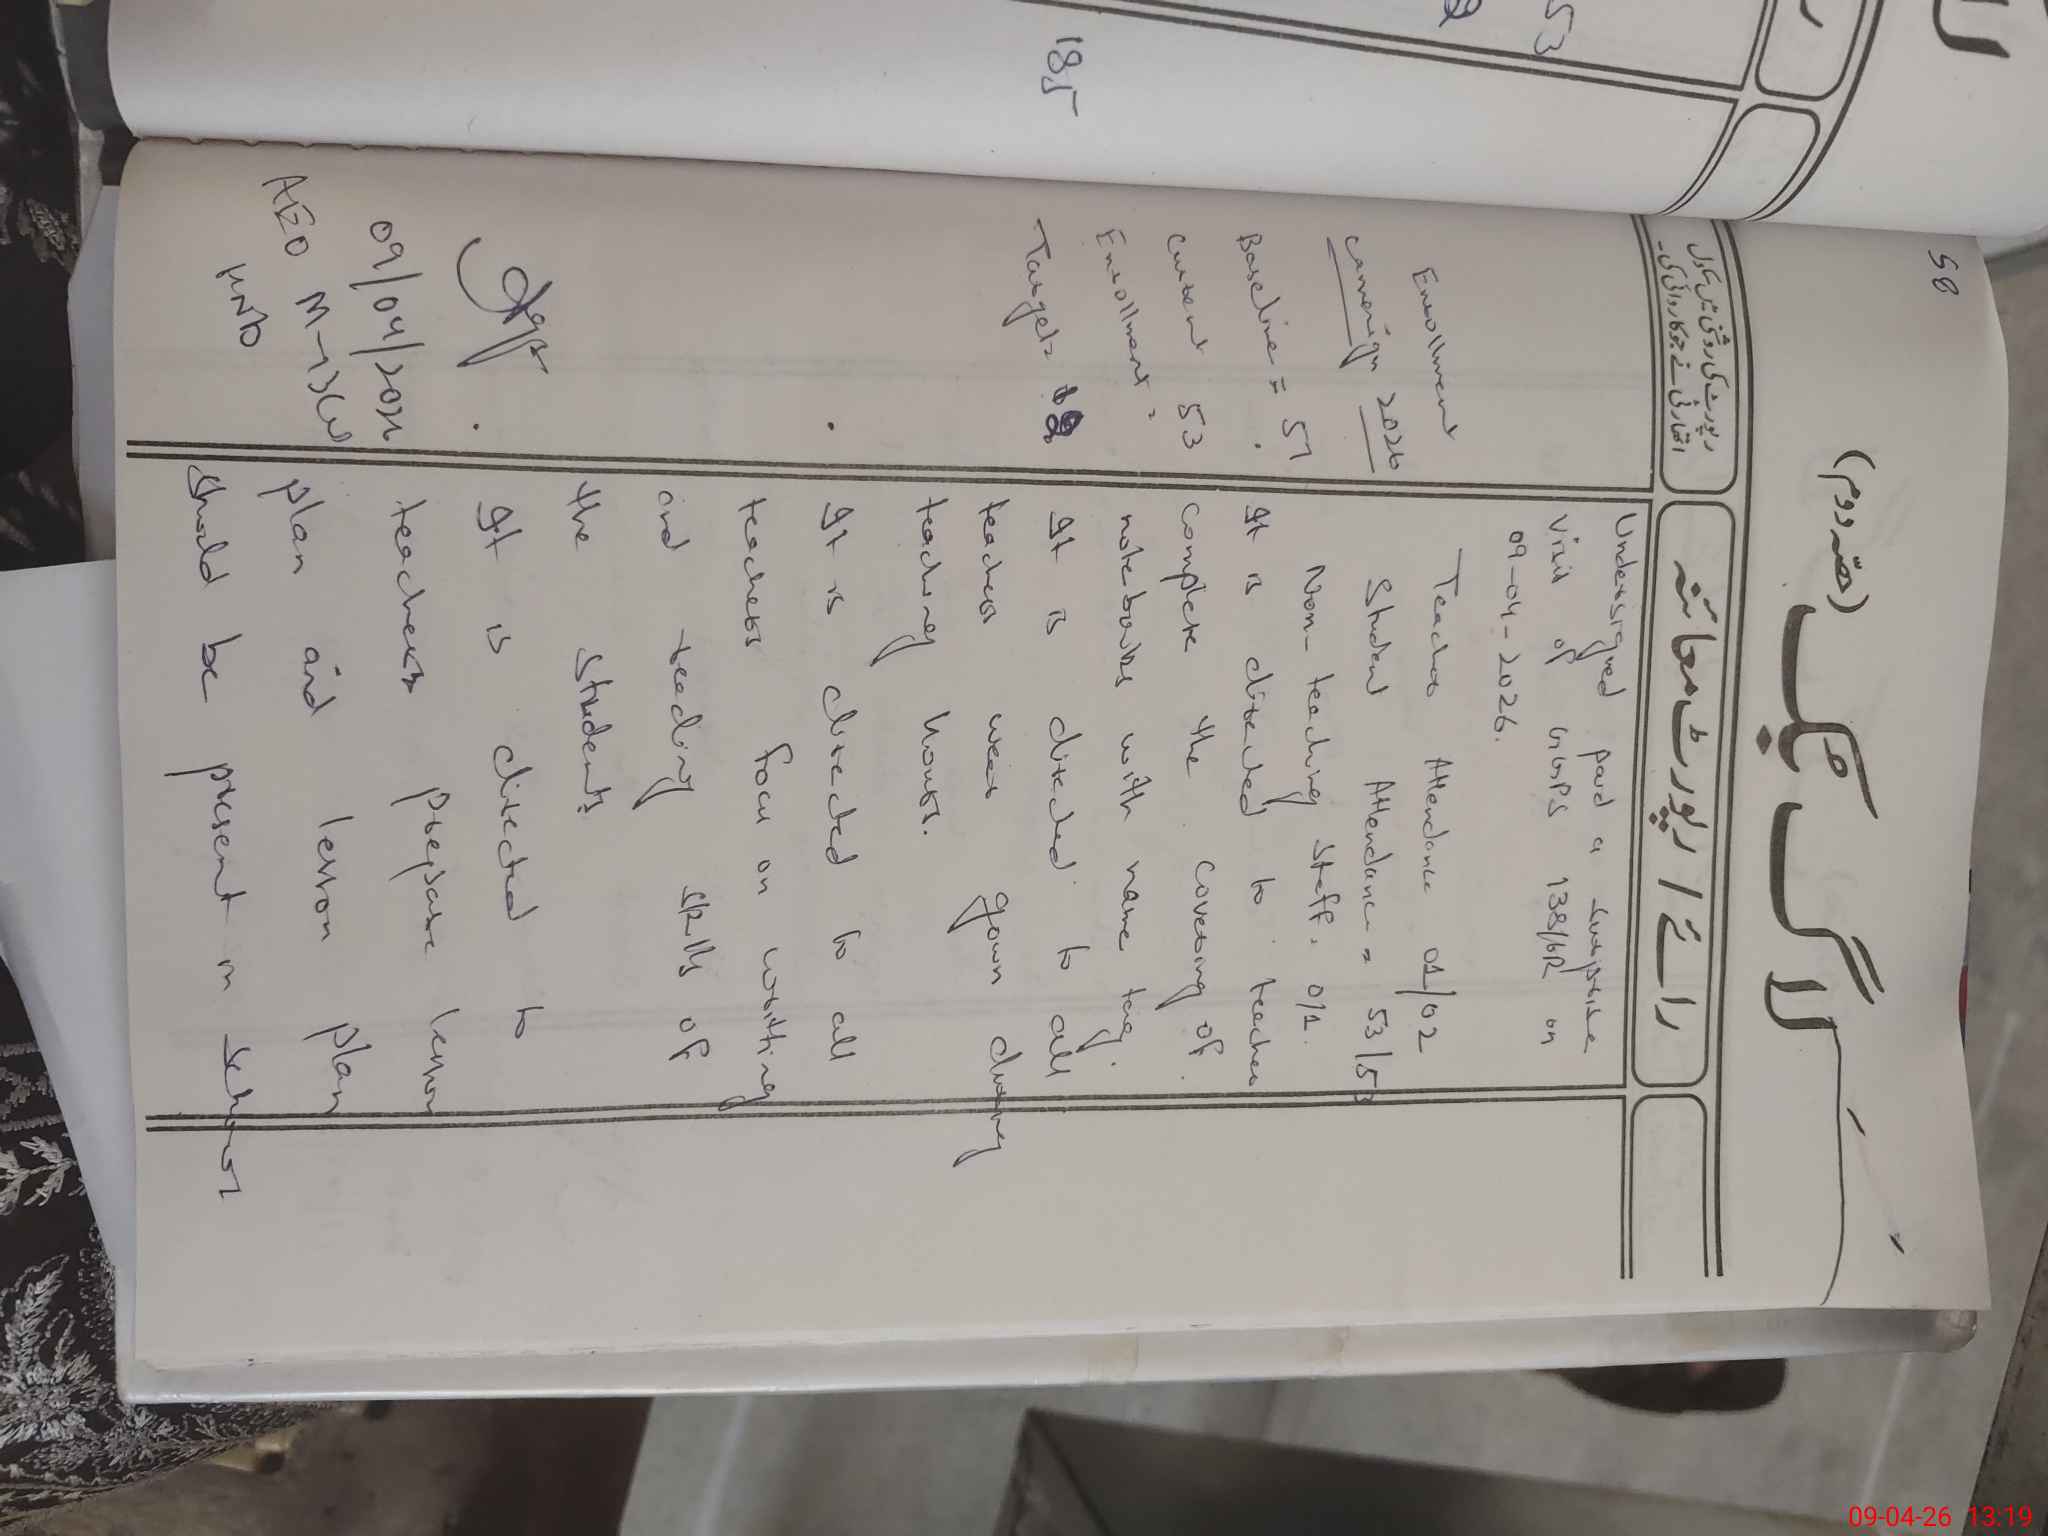 58
لاگ بک
(حصّہ دوم)
رائے / رپورٹ معائنہ
رپورٹ کی روشنی میں سکول
اتھارٹی نے جو کارروائی کی۔
Undersigned paid a surprise
visit of GGPS 138/6R on
09-04-2026.
Teacher Attendance 01/02
Student Attendance = 53/53
Non-teaching Staff. 0/1.
It is directed to teacher
complete the covering of
notebooks with name tag.
It is directed to all
teachers wear gown during
teaching hours.
It is directed to all
teachers focus on writting
and reading skills of
the students.
It is directed to
teachers prepare lesson
plan and lesson plan
should be present in school
Enrollment
Campaign 2026
Baseline = 51
Current 53
Enrollment =
Target =
09/04/2026
AEO M-13
HND
53
18
09-04-26 13:19